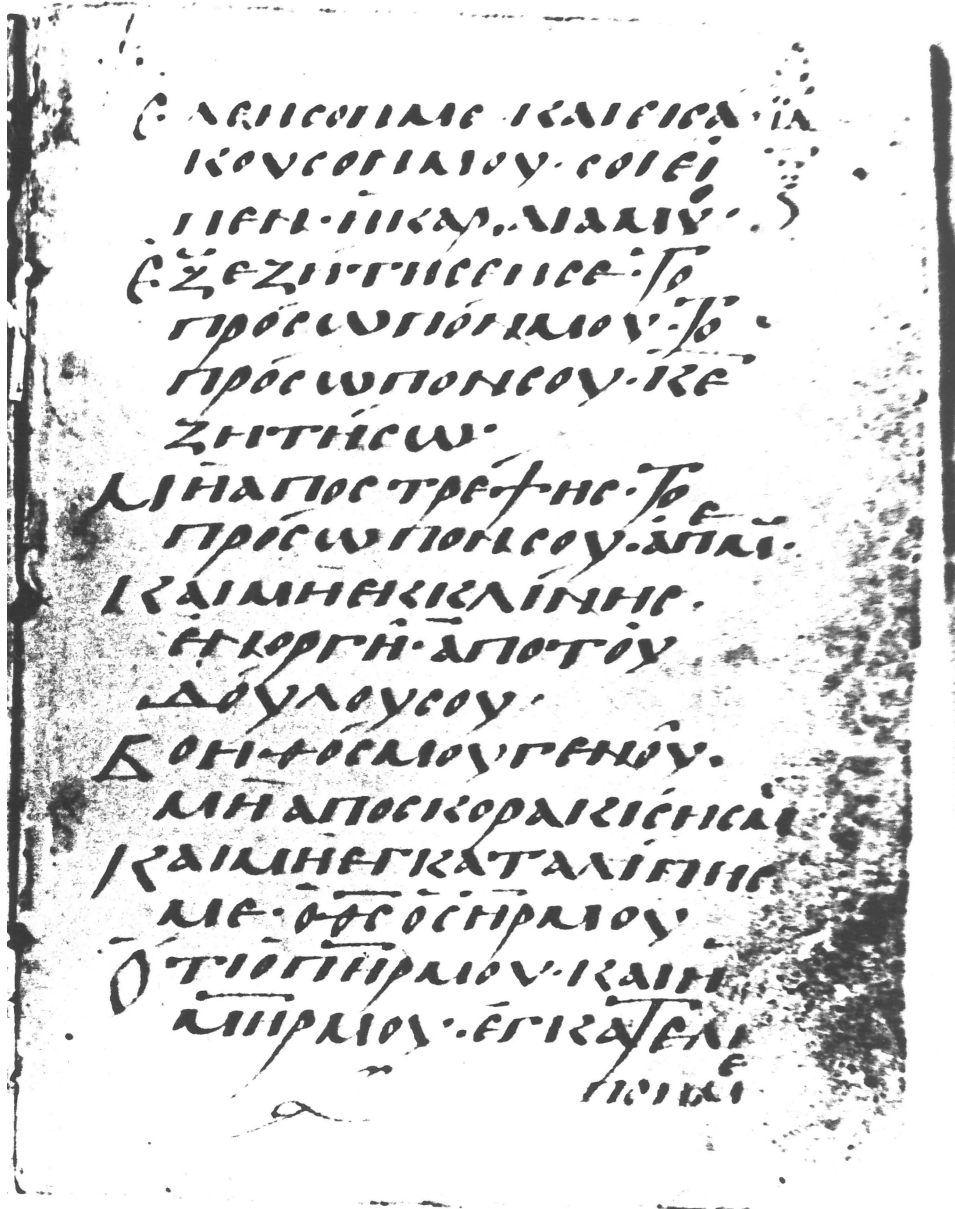 Ελεησον με και εισα
κουσον μου· σοι εἶ
πεν· ἡ καρδια μȣ·
Ἐξεζητησεν σε· το
πρόσωπόν μου· το
πρόσωπον σου· κ̅ε̅
ζητήσω·
Μὴ αποστρέψης· το
πρόσωπον σου· ἀπ ἐμ̅·
Και μὴ εκκλίνης·
ἐν οργῆ· ἀπο τοῦ
δούλου σου·
Βοηθός μου γενοῦ·
μὴ αποσκορακίσης μ
Και μὴ εγκαταλίπης
με· ὁ θ̅ς̅ ὁ σ̅η̅ρ̅ μου
Ὅτι ὁ π̅η̅ρ̅ μου· και ἡ
μ̅η̅ρ̅ μου· ἐγκατελι
πον με